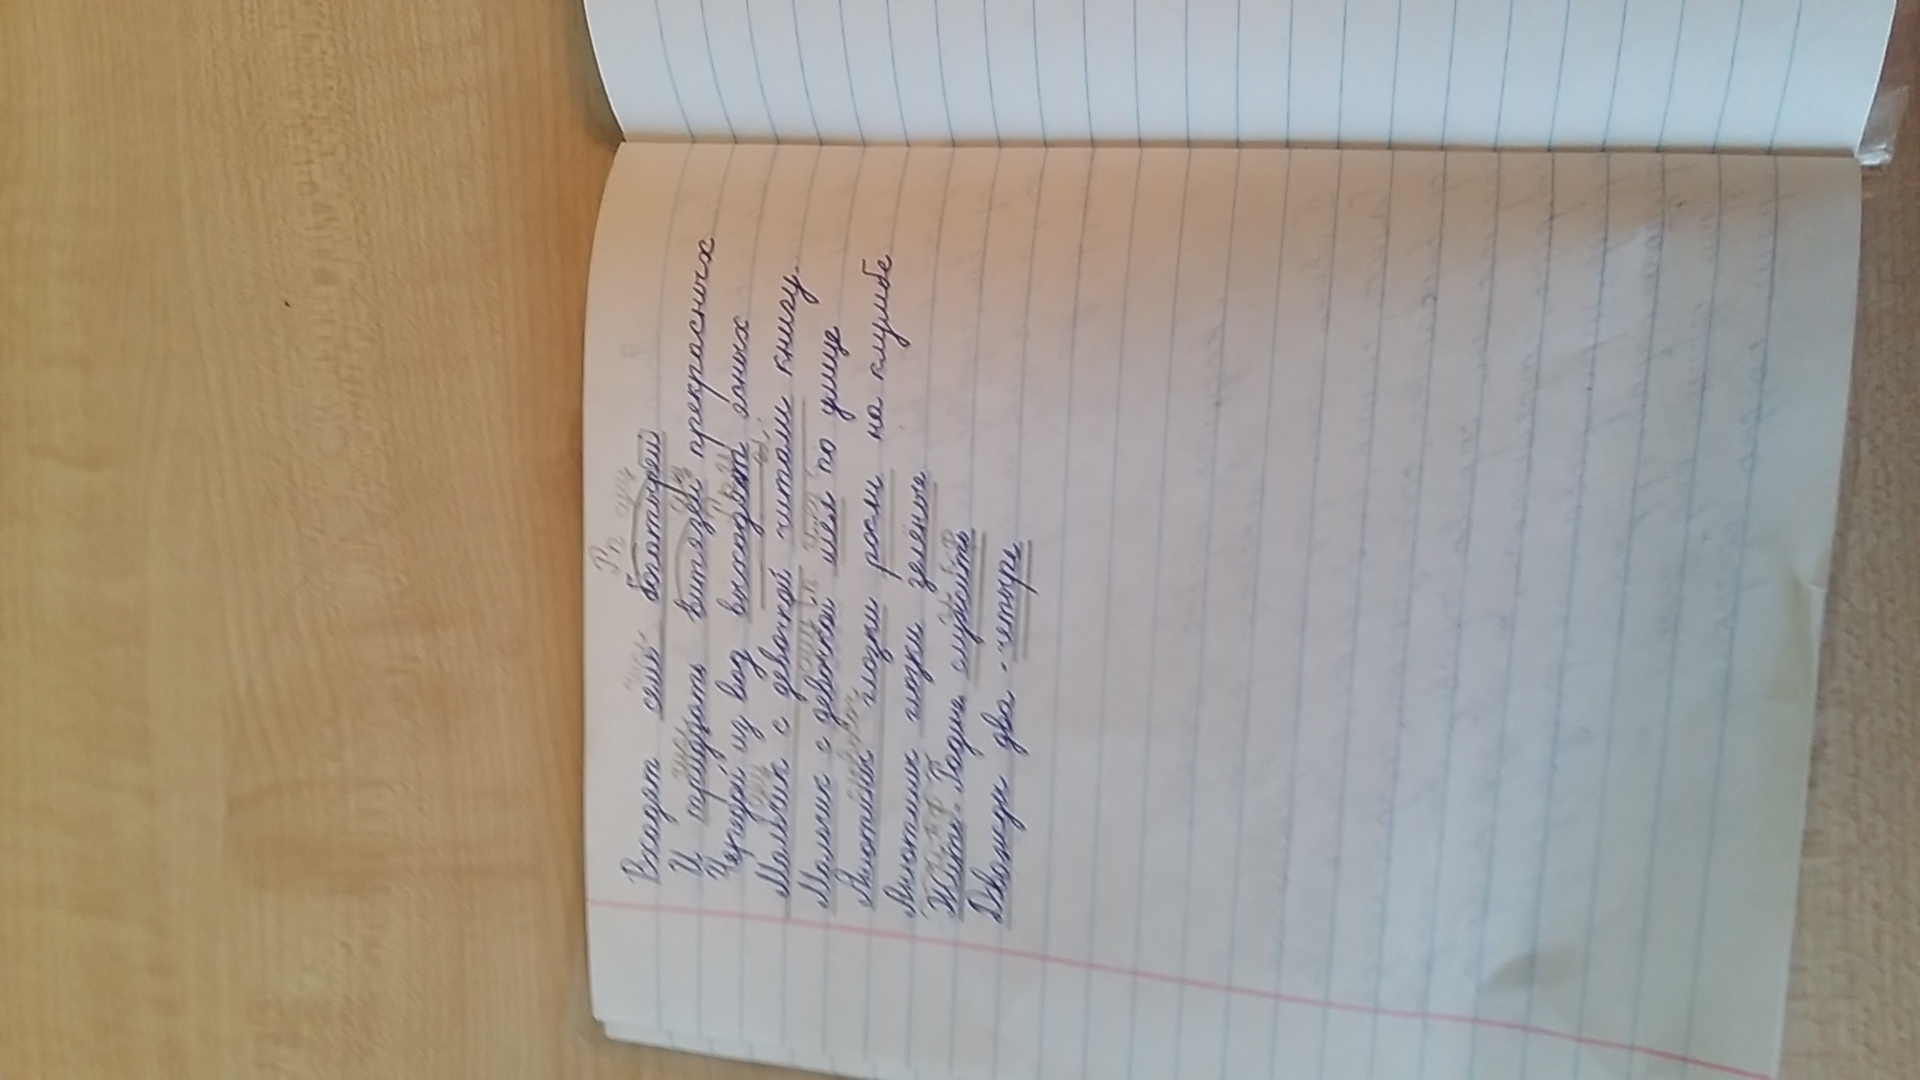 Р.п. сущ.
Входят семь богатырей
И тридцать витязей прекрасных
Чередой из вод выходят ясных
Мальчик с девочкой читали книгу.
Мальчик с девочкой шёл по улице
Анютины глазки росли на клумбе
Анютины глазки зелёные
Жить - Родине служить
Дважды два - четыре